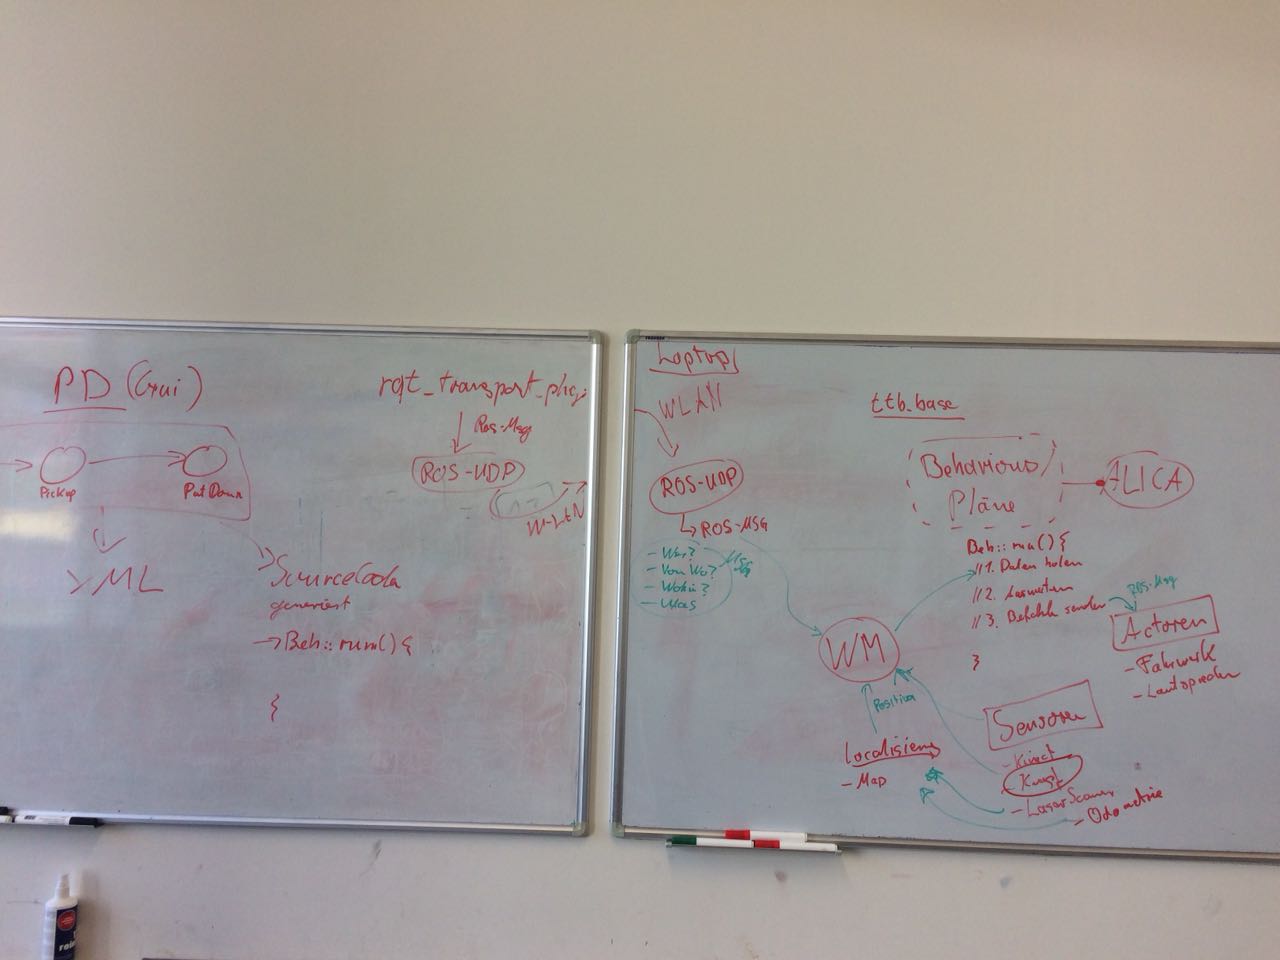 PD (Gui)
Pickup
PutDown
XML
SourceCode
generiert
→ Beh::run(){
}
rqt_transport_plugi
Ros-Msg
ROS-UDP
W-LAN
Laptop
WLAN
ROS-UDP
ROS-MSG
- Wer?
- Von Wo?
- Wohin?
- Was
Msg
ttb_base
Behaviour
Pläne
ALICA
Beh::run(){
//1. Daten holen
//2. Auswerten
//3. Befehle senden
}
ROS-Msg
Actoren
- Fahrwerk
- Lautsprecher
WM
Position
Localisierung
- Map
Sensoren
- Kinect
- LaserScanner
- Odometrie